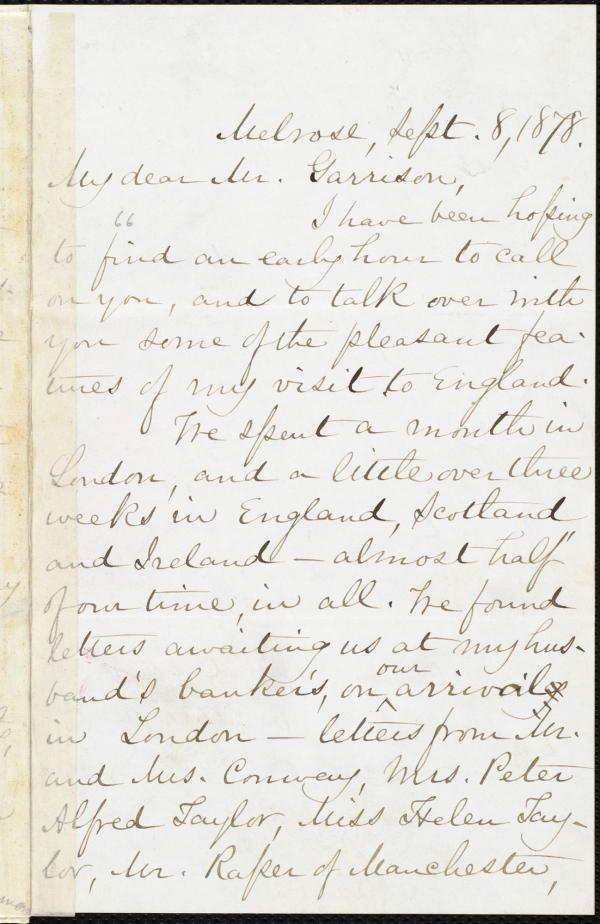 Melrose, Sept. 8, 1878.
My dear Mr. Garrison,
66
I have been hoping
to find an early hour to call
on you, and to talk over with
you some of the pleasant fea-
tures of my visit to England.
We spent a month in
London, and a little over three
weeks in England, Scotland
and Ireland — almost half
of our time, in all. We found
letters awaiting us at my hus-
band's banker's, on our arrival
in London — letters from Mr.
and Mrs. Conway, Mrs. Peter
Alfred Taylor, Miss Helen Tay-
lor, Mr. Raper of Manchester,